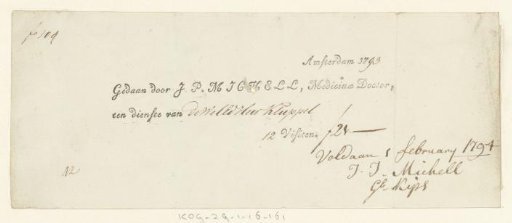 Amsterdam 1793
Gedaan door J. P. MICHELL, Medicinæ Doctor,
ten dienste van de Wel Ed Heer Kluppel
12 Visiten ƒ 24 —
Voldaan 5 february 1794
J. J. Michell
KOG-2G-1-16-161